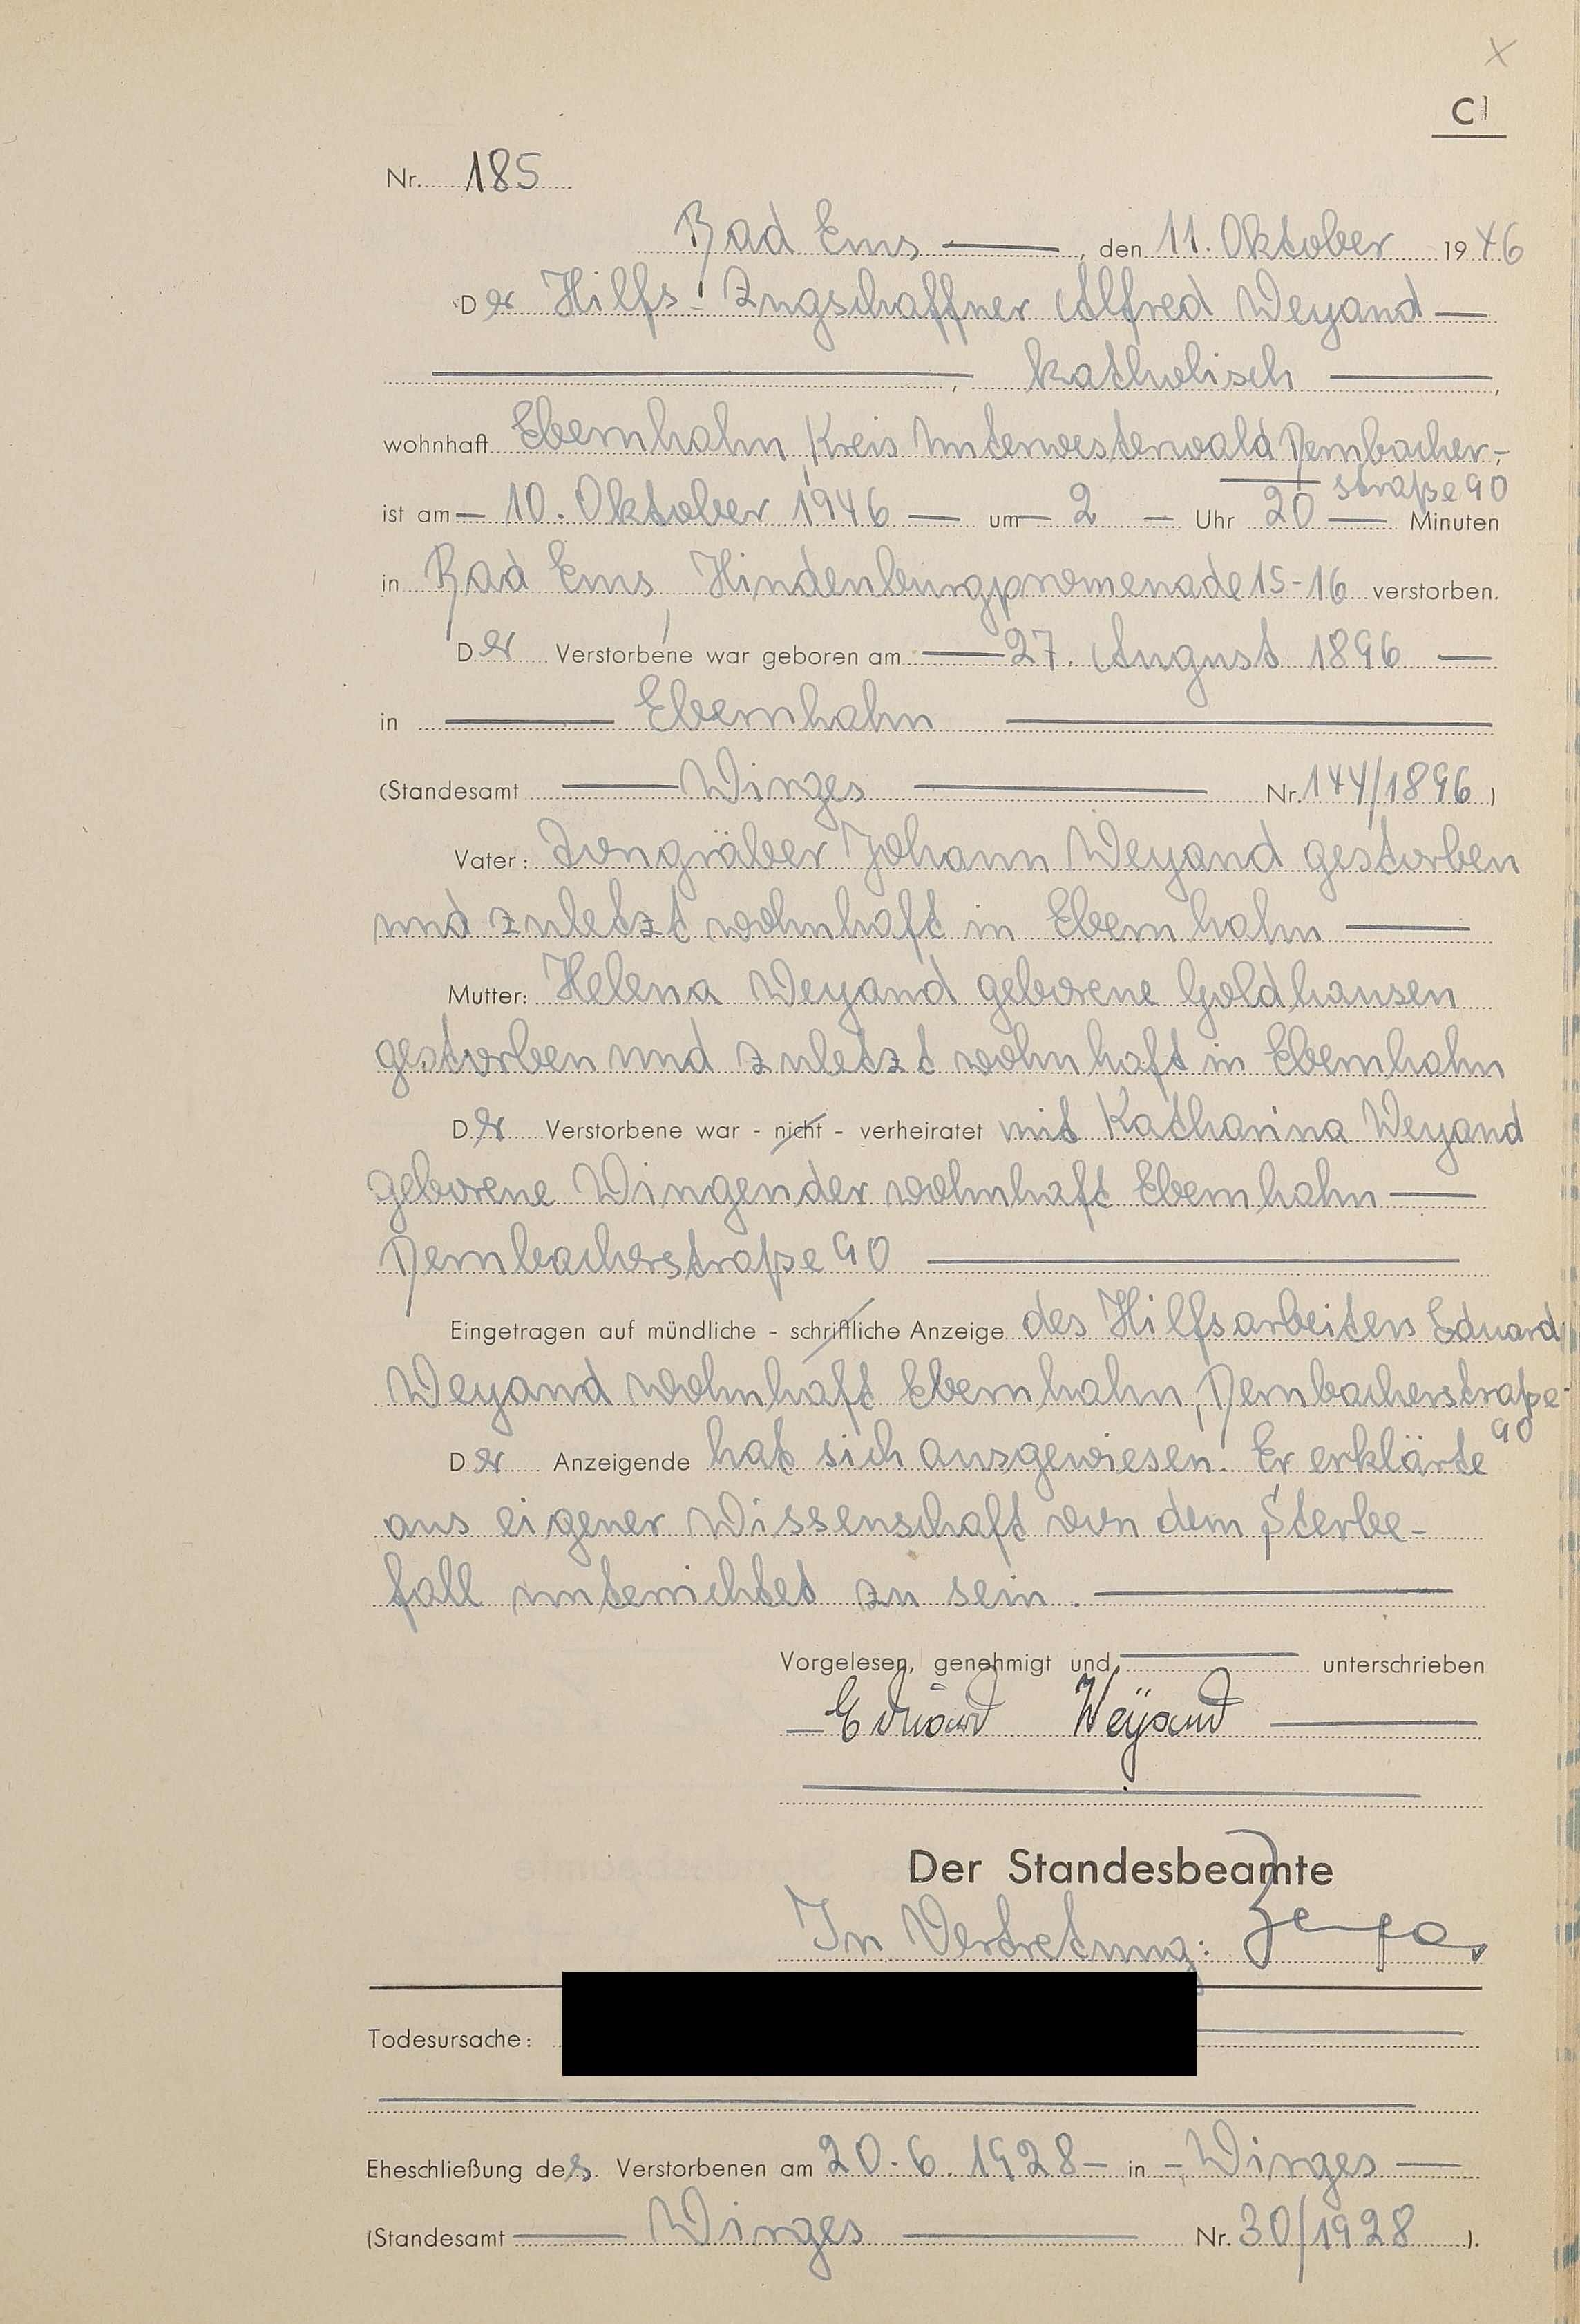 C
Nr. 185
Bad Ems —, den 11. Oktober 1946
Der Hilfs-Zugschaffner Alfred Weyand —
—, katholisch —,
wohnhaft Ebernhahn, Kreis Unterwesterwald Dernbacher-
straße 90
ist am — 10. Oktober 1946 — um — 2 — Uhr 20 — Minuten
in Bad Ems, Hindenburgpromenade 15-16 verstorben.
Der Verstorbene war geboren am — 27. August 1896 —
in — Ebernhahn —
(Standesamt — Wirges — Nr. 144/1896)
Vater: Tongräber Johann Weyand gestorben
und zuletzt wohnhaft in Ebernhahn —
Mutter: Helena Weyand geborene Goldhausen
gestorben und zuletzt wohnhaft in Ebernhahn
Der Verstorbene war - nicht - verheiratet mit Katharina Weyand
geborene Wingender wohnhaft Ebernhahn —
Dernbacherstraße 90 —
Eingetragen auf mündliche - schriftliche Anzeige des Hilfsarbeiters Eduard
Weyand wohnhaft Ebernhahn, Dernbacherstraße
90
Der Anzeigende hat sich ausgewiesen. Er erklärte
aus eigener Wissenschaft von dem Sterbe-
fall unterrichtet zu sein. —
Vorgelesen, genehmigt und — unterschrieben
— Eduard Weyand —
Der Standesbeamte
In Vertretung:
Todesursache:
Eheschließung des Verstorbenen am 20.6.1928 — in — Wirges —
(Standesamt — Wirges — Nr. 30/1928).